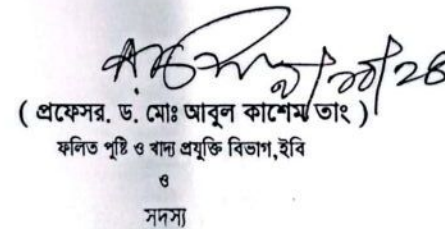 ( প্রফেসর. ড. মোঃ আবুল কাশেম তাং )
ফলিত পুষ্টি ও খাদ্য প্রযুক্তি বিভাগ,ইবি
ও
সদস্য